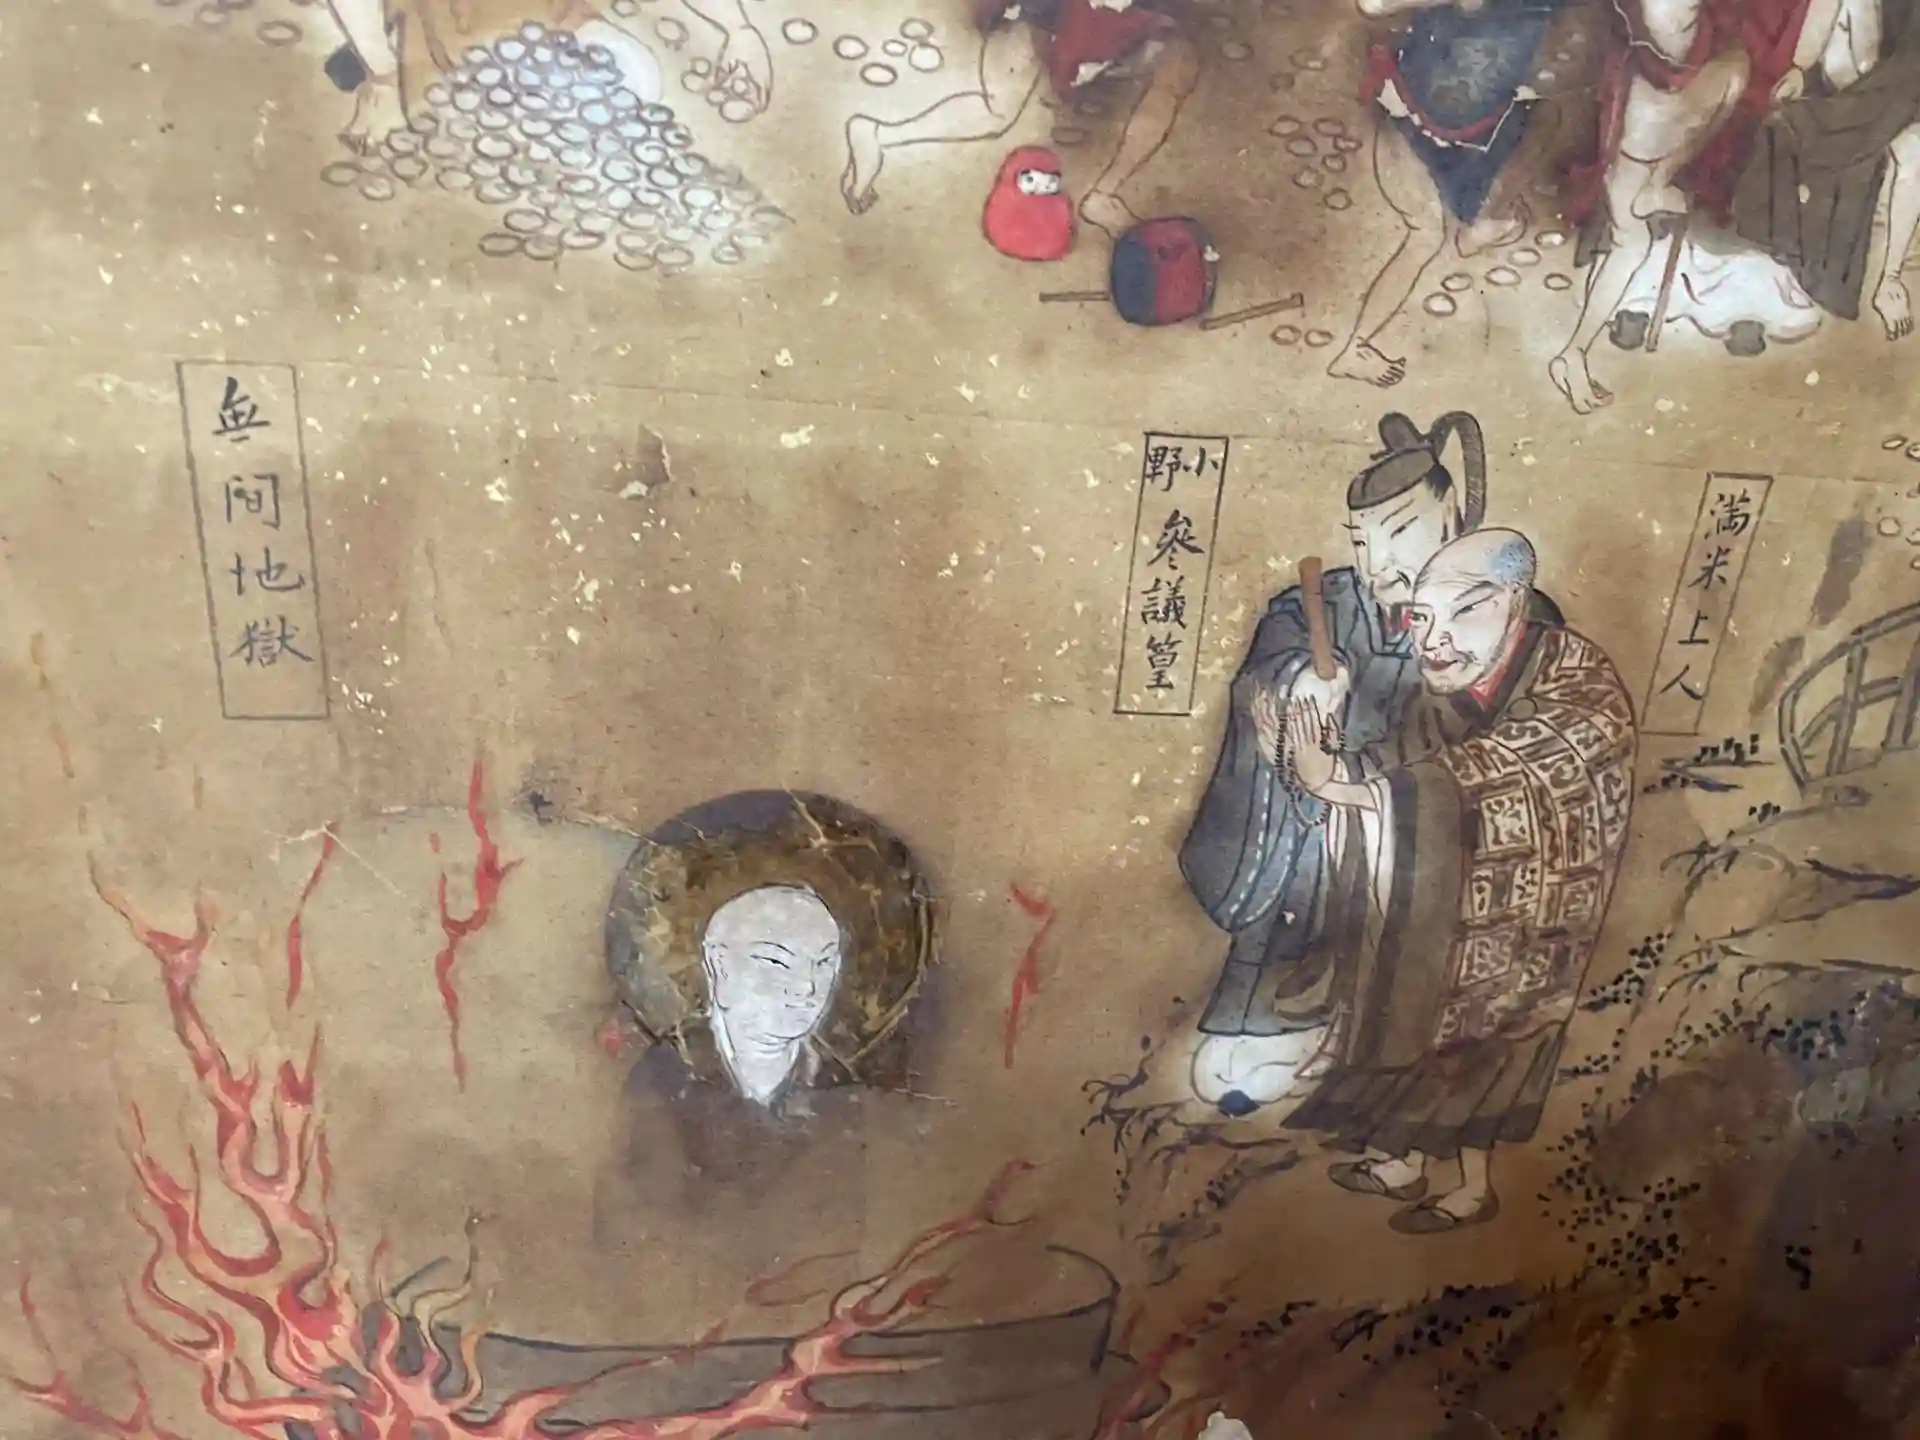 満米上人
小野参議篁
無間地獄